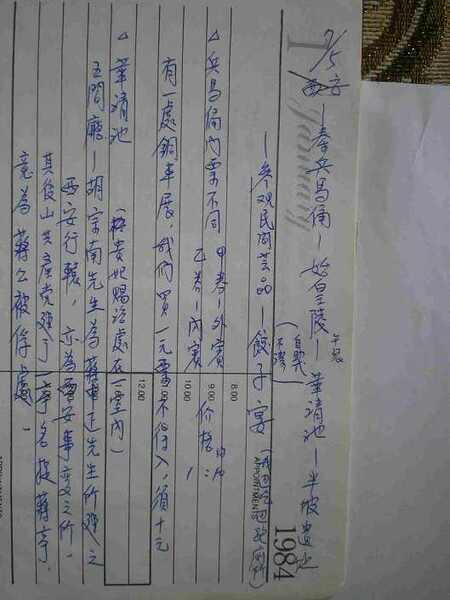 1 January 1984
7/5 西安—秦兵馬俑—始皇陵—華靖池—半坡遺址
午飯
—參观民間芸品—餃子宴
APPOINTMENTS
8.00
△ 兵馬俑內票不同 甲券—外賓 价格:
9.00
乙券—內賓
10.00
有一處銅車展,我們買一元票不得入,須十元
12.00
△ 華靖池 (楊貴妃賜浴處在一室內)
五間廳—胡宗南先生為蔣中正先生所建之
西安行轅,亦為西安事變之所,
其後山共產党建了一亭名捉蔣亭,
竟為蔣公被俘處!